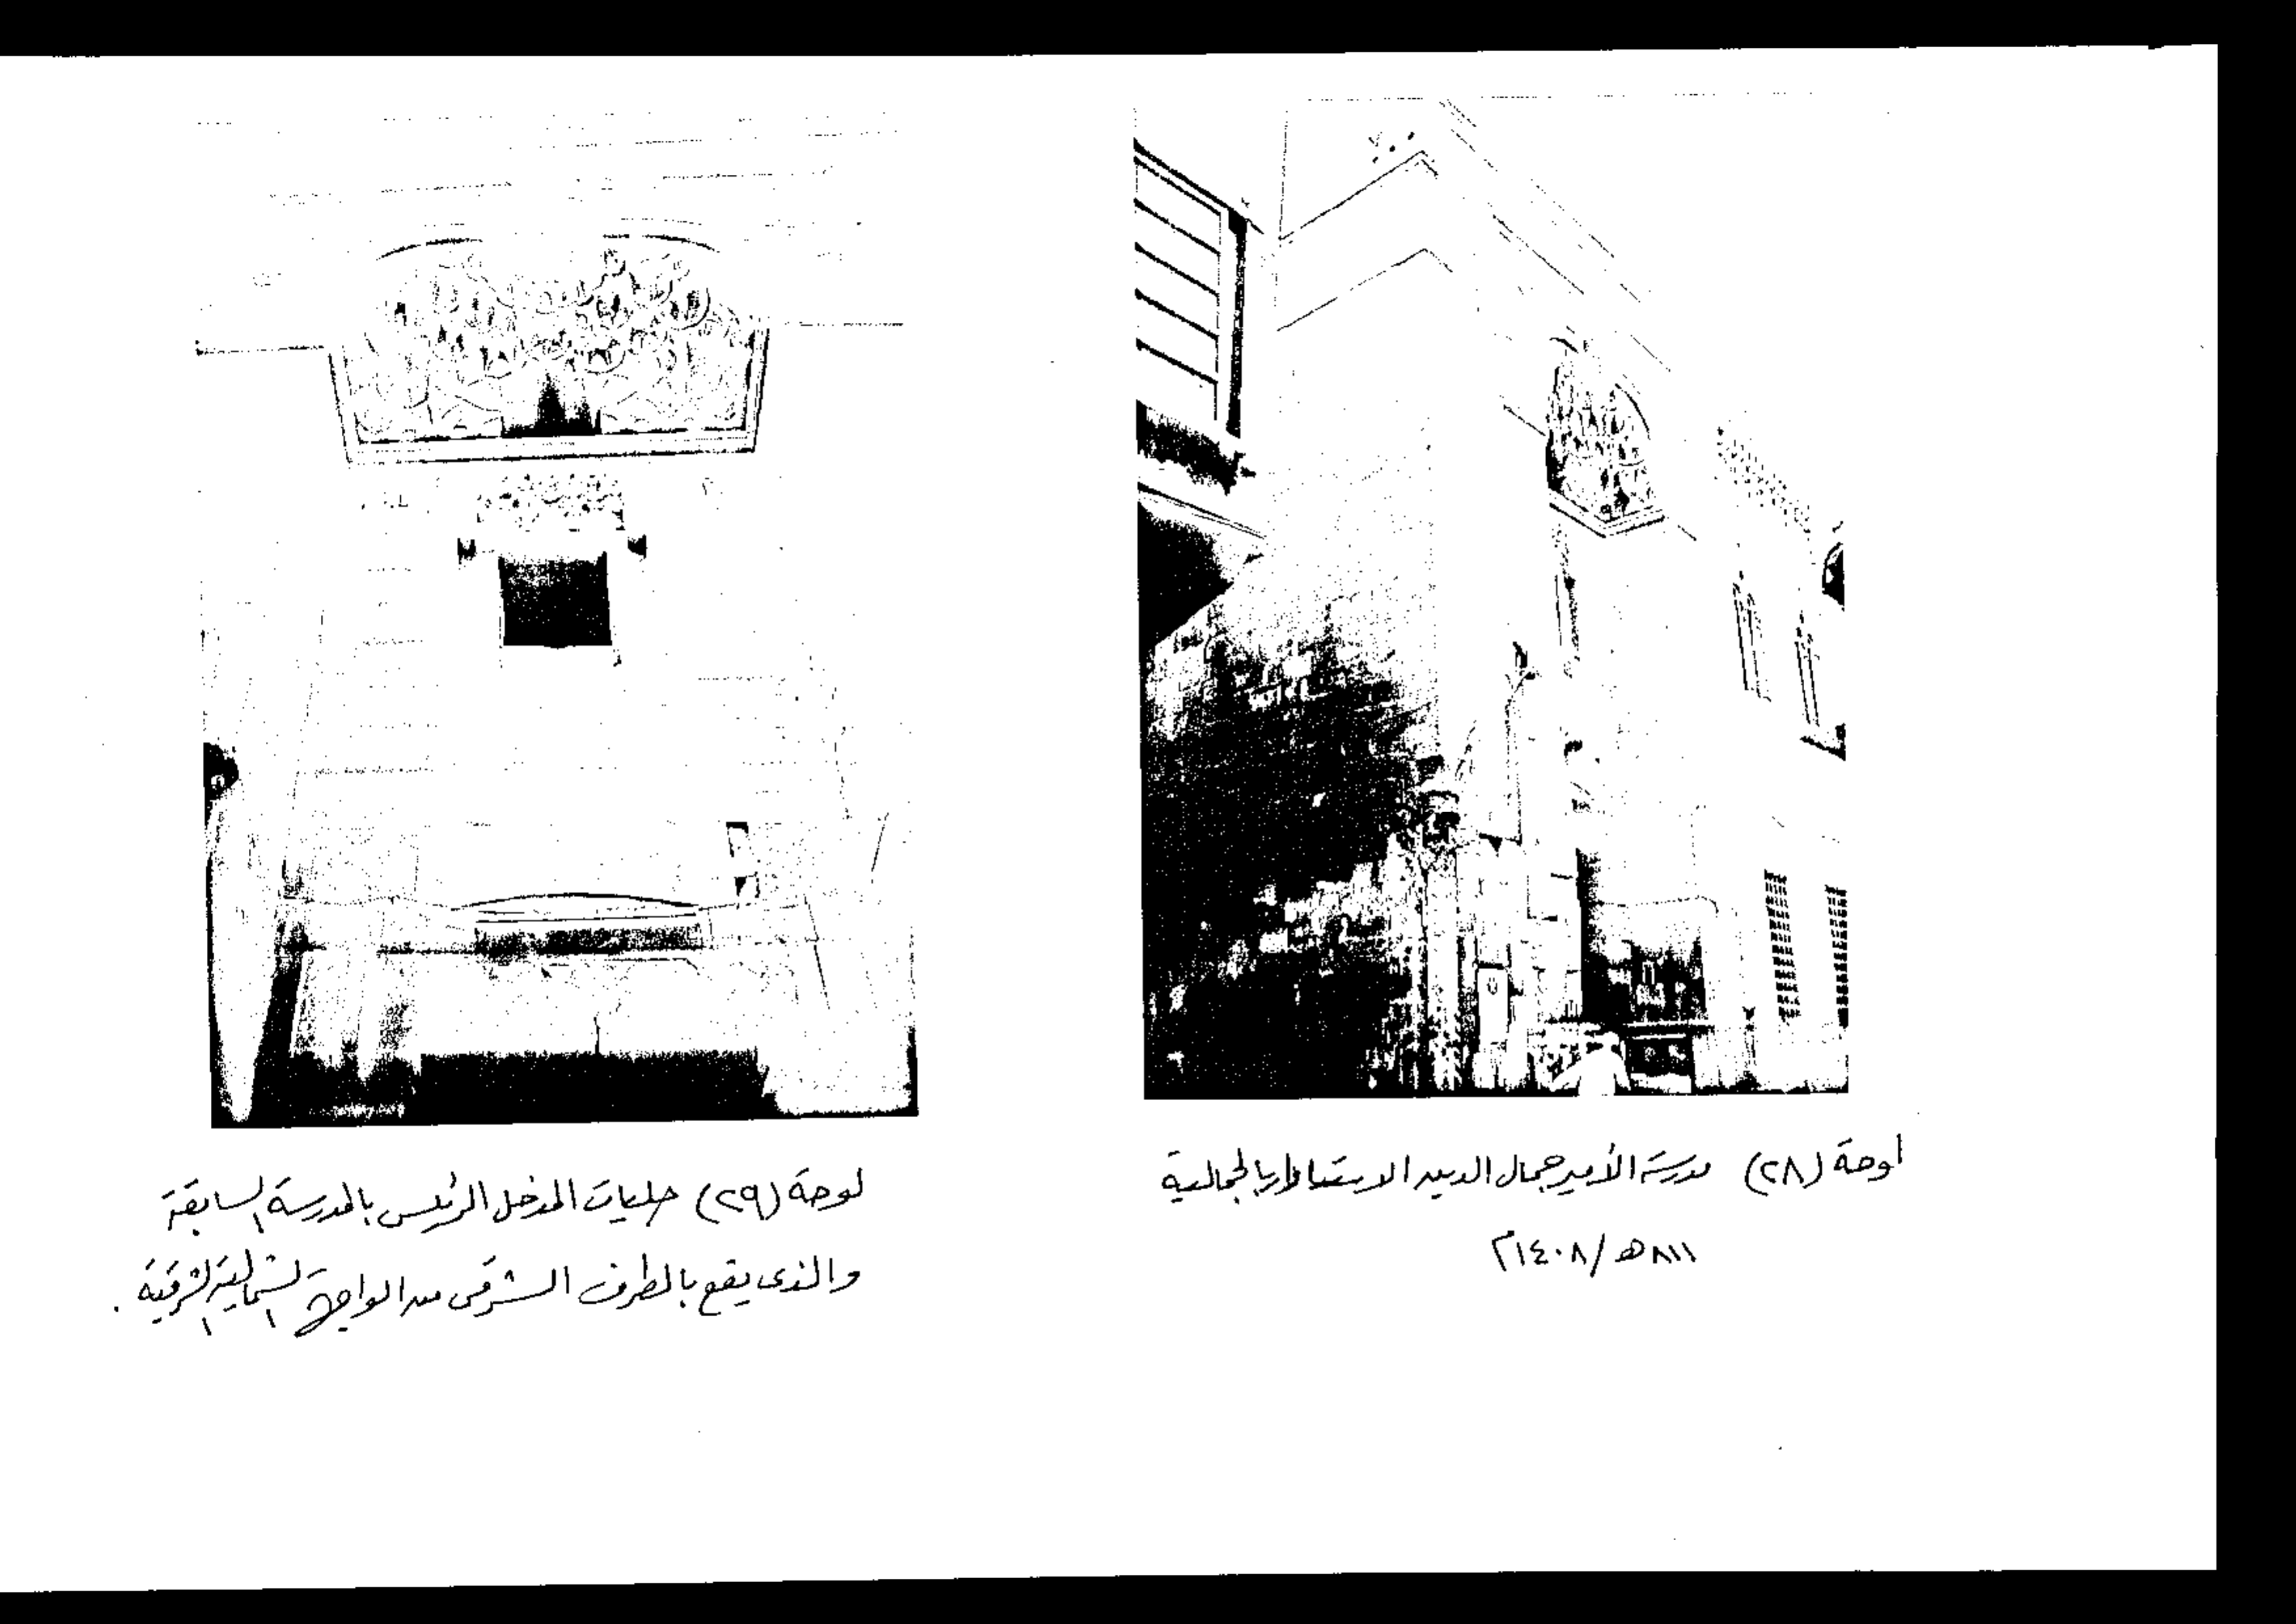 لوحة (٢٨) مدرسة الأمير جمال الدين الاستادار بالجمالية
٨١١هـ/١٤٠٨م
لوحة (٢٩) حليات المدخل الرئيس بالمدرسة السابقة
والذى يقع بالطرف الشرقى من الواجهة الشمالية الشرقية .